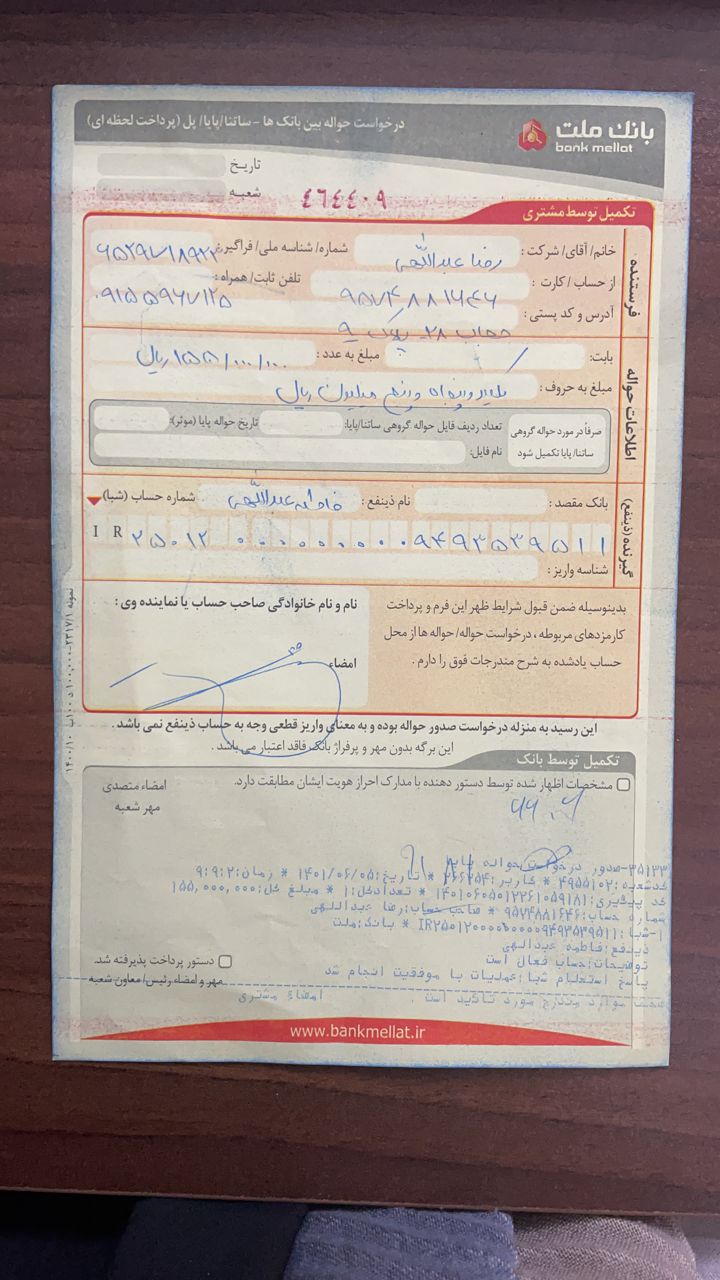 بانک ملت
bank mellat
درخواست حواله بین بانک ها - ساتنا/پایا/ پل (پرداخت لحظه ای)
تاریخ
شعبه
٤٦٤٤٠٩
تکمیل توسط مشتری
فرستنده
خانم/ آقای/ شرکت : رضا عبداللهی شماره/ شناسه ملی/ فراگیر:
از حساب / کارت : ۹۵۷۴۸۸۱۶۴۶ تلفن ثابت/ همراه :
آدرس و کد پستی : ۰۹۱۵۵۹۶۷۱۲۵
حجاب ۲۸- پلاک ۹
اطلاعات حواله
بابت: / مبلغ به عدد : ۱۵۵/۰۰۰/۰۰۰ ریال
مبلغ به حروف : پنجاه و پنج میلیون ریال
صرفاً در مورد حواله گروهی ساتنا/ پایا تکمیل شود
تعداد ردیف فایل حواله گروهی ساتنا/پایا: تاریخ حواله پایا (موثر):
نام فایل:
گیرنده (ذینفع)
بانک مقصد : نام ذینفع : فاطمه عبداللهی شماره حساب (شبا)
I R ۲۵۰۱۲۰۰۰۰۰۰۰۰۰۹۴۹۳۵۳۹۵۱۱
شناسه واریز :
بدینوسیله ضمن قبول شرایط ظهر این فرم و پرداخت
کارمزدهای مربوطه ، درخواست حواله/ حواله ها از محل
حساب یادشده به شرح مندرجات فوق را دارم .
نام و نام خانوادگی صاحب حساب یا نماینده وی :
امضاء
این رسید به منزله درخواست صدور حواله بوده و به معنای واریز قطعی وجه به حساب ذینفع نمی باشد .
این برگه بدون مهر و پرفراژ بانک فاقد اعتبار می باشد .
تکمیل توسط بانک
مشخصات اظهار شده توسط دستور دهنده با مدارک احراز هویت ایشان مطابقت دارد.
امضاء متصدی
مهر شعبه
۳۵۱۳۳-صدور درخواست حواله پایا
کدشعبه:۴۹۵۵۱۰۲ * کاربر:۲۶۶۲۵۴ * تاریخ:۱۴۰۱/۰۶/۰۵ * زمان:۹:۹:۲
کد پیگیری:۱۴۰۱۰۶۰۵۰۱۲۲۶۱۰۵۹۱۸۱ * تعدادکل:۱ * مبلغ کل:۱۵۵,۰۰۰,۰۰۰
شماره حساب:۹۵۷۴۸۸۱۶۴۶ * صاحب حساب:رضا عبداللهی
۱-شبا:IR۲۵۰۱۲۰۰۰۰۰۰۰۰۰۹۴۹۳۵۳۹۵۱۱ * بانک:ملت
ذینفع:فاطمه عبدالهی
توضیحات:حساب فعال است
پاسخ استعلام شبا:عملیات با موفقیت انجام شد
صحت موارد مندرج مورد تائید است . امضاء مشتری
دستور پرداخت پذیرفته شد.
مهر و امضاء رئیس/ معاون شعبه
www.bankmellat.ir